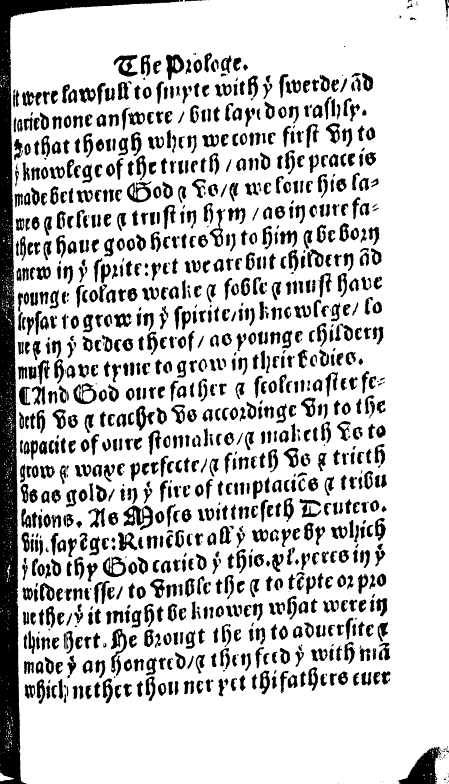 The Prologe.
it were lawfull to smyte with ẏ swerde/ ād
taried none answere / but layd on rashly.
So that though when we come first vn to
ẏ knowlege of the trueth / and the peace is
made betwene God ⁊ vs/ ⁊ we loue his la⸗
wes ⁊ beleue ⁊ trust in hym / as in oure fa⸗
ther ⁊ haue good hertes vn to him ⁊ be born
anew in ẏ sprite: yet we are but childern ād
younge scolars weake ⁊ foble ⁊ must haue
leysar to grow in ẏ spirite/ in knowlege/ lo
ue ⁊ in ẏ dedes therof / as younge childern
must haue tyme to grow in their bodies.
¶And God oure father ⁊ scolemaster fe⸗
deth vs ⁊ teached vs accordinge vn to the
capacite of oure stomakes/ ⁊ maketh vs to
grow ⁊ waxe perfecte/ ⁊ fineth vs ⁊ trieth
vs as gold/ in ẏ fire of temptaciēs ⁊ tribu
lations. As Moses wittneseth Deutero.
viij. sayēge: Remēber all ẏ waye by which
ẏ lord thy God caried ẏ this. xl. yeres in ẏ
wildernesse/ to vmble the ⁊ to tēpte or pro
ue the/ ẏ it might be knowen what were in
thine hert. He brougt the in to aduersite ⁊
made ẏ an hongred/ ⁊ then feed ẏ with mā
which nether thou ner yet thi fathers euer